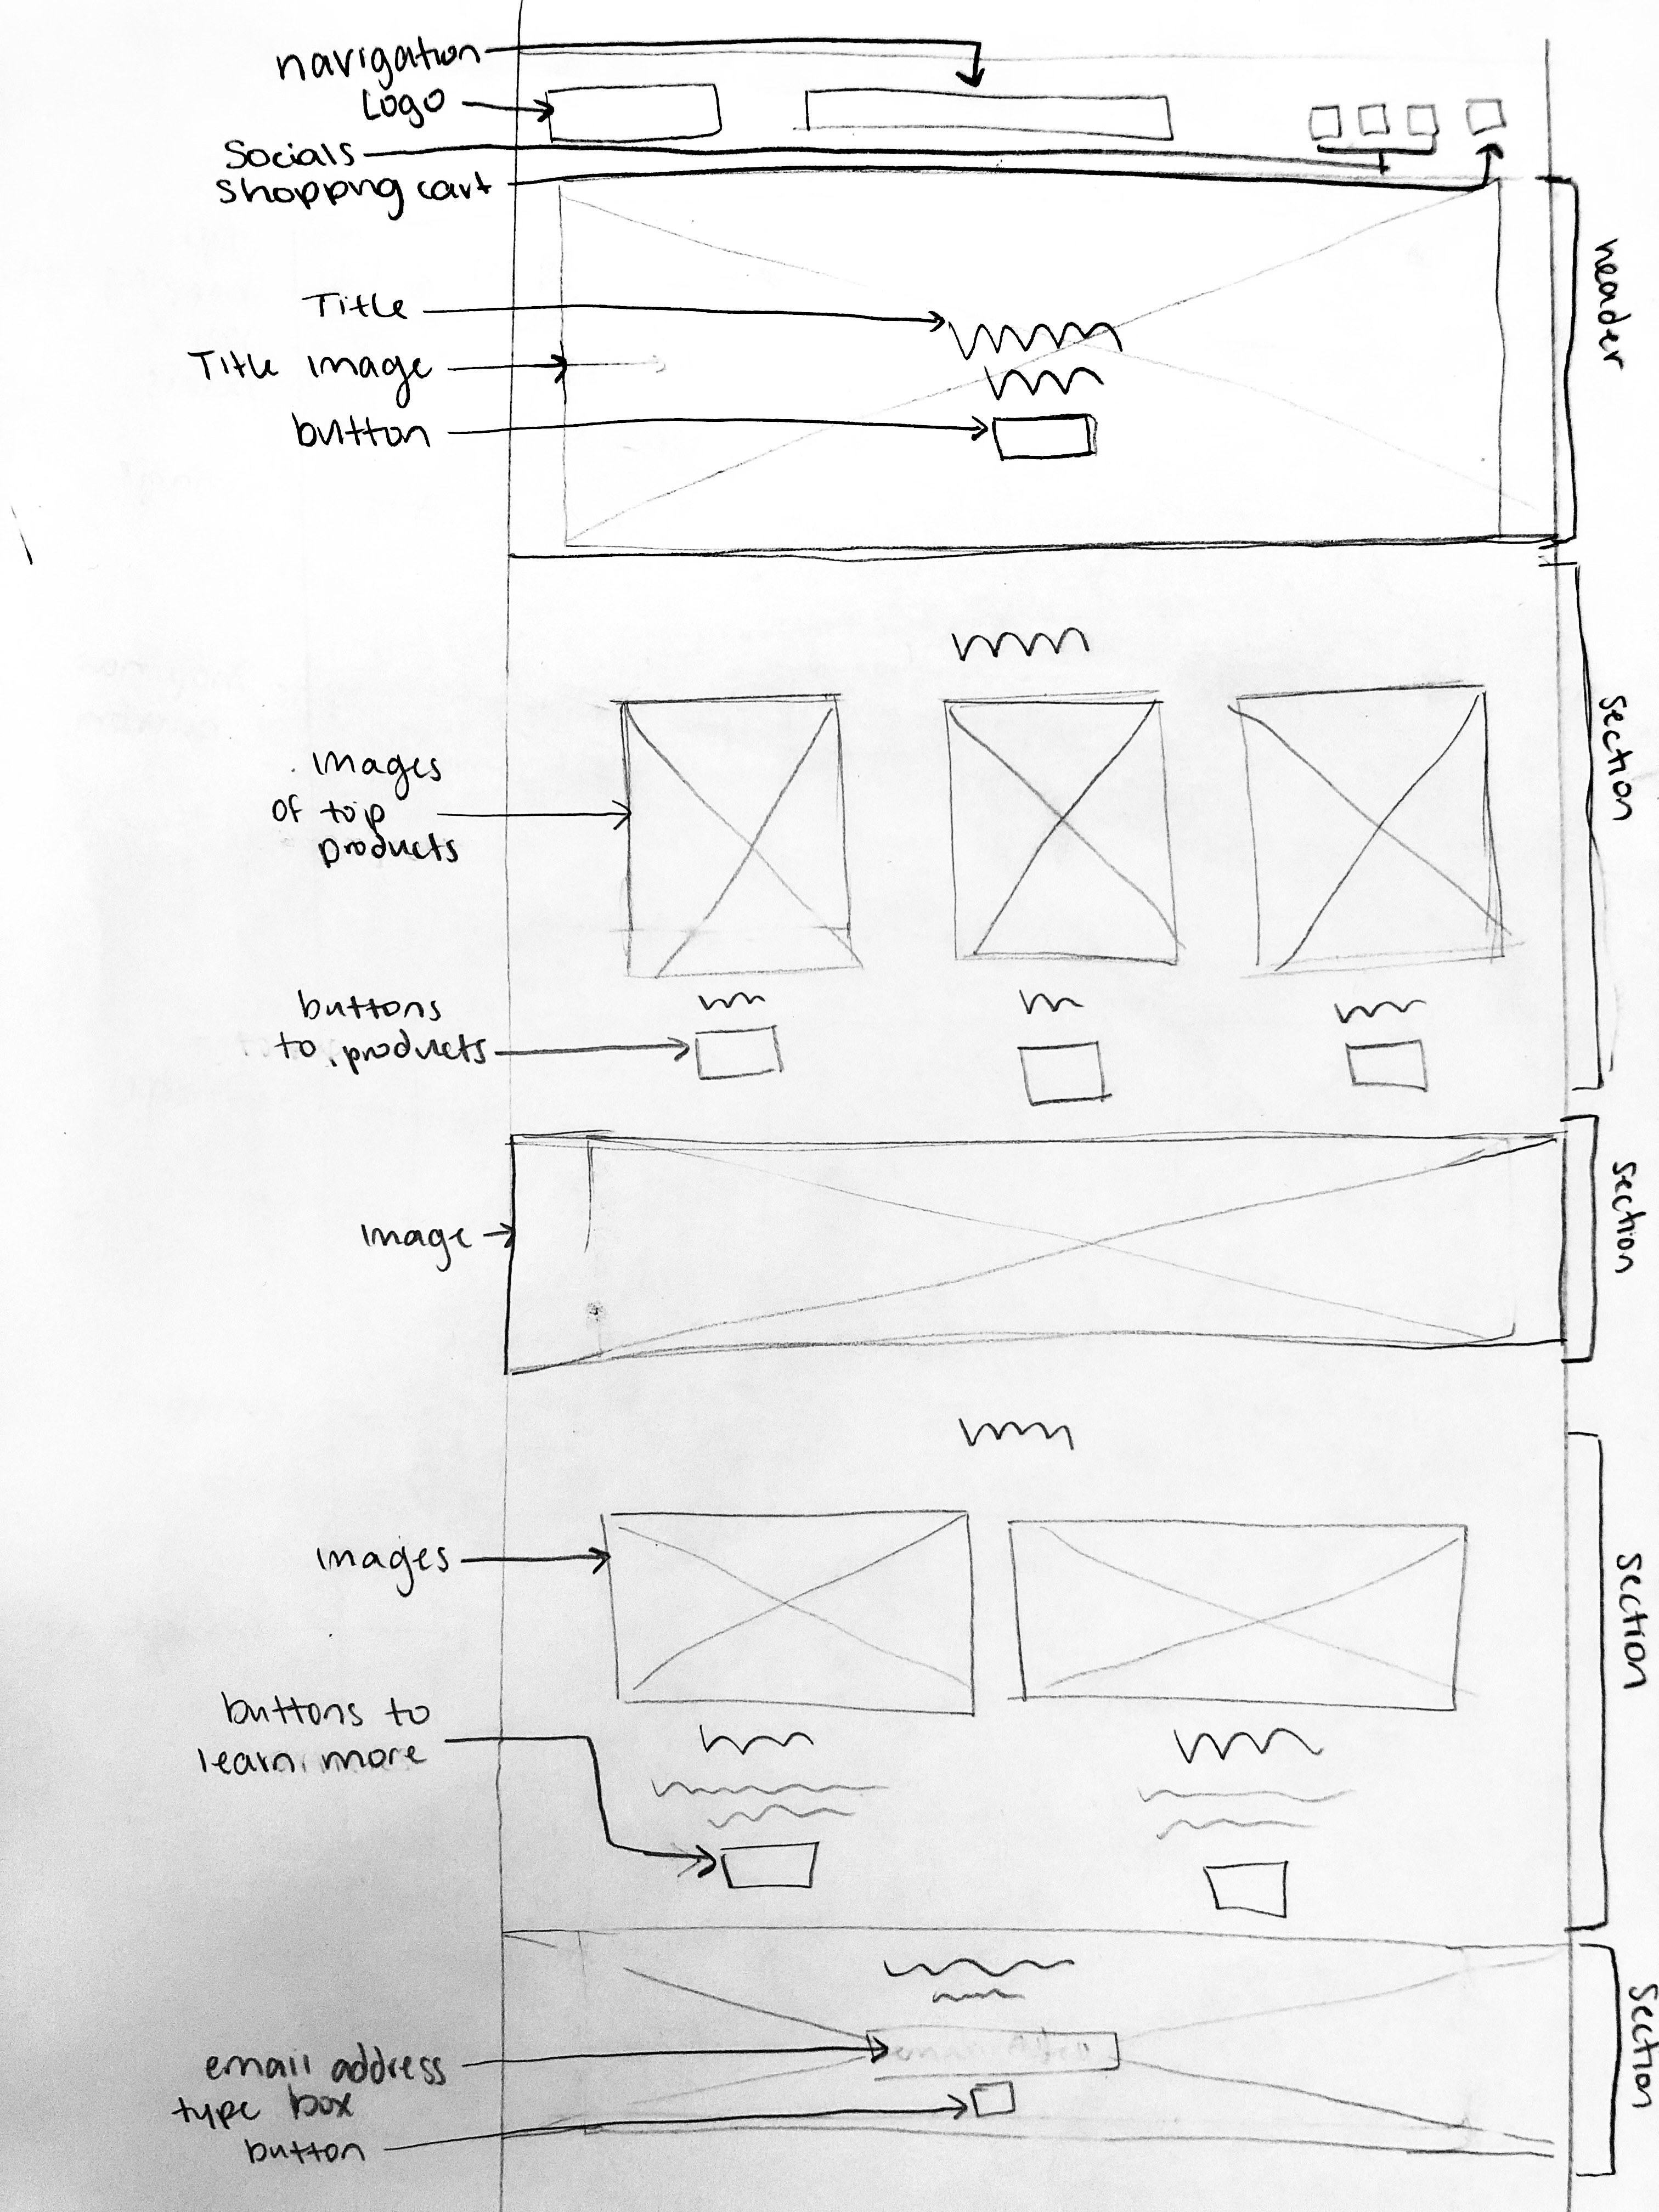 navigation
Logo
Socials
shopping cart
header
Title
Title image
button
section
images
of top
products
buttons
to products
section
image
section
images
buttons to
learn more
section
email address
type box
button